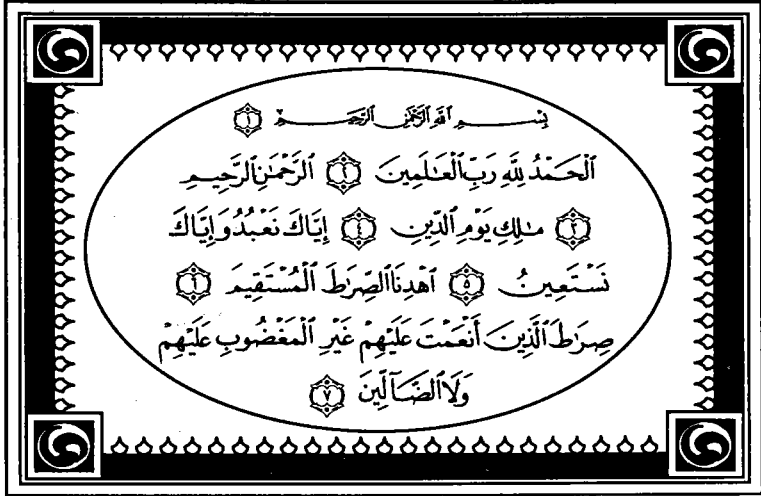 بِسْمِ ٱللَّهِ ٱلرَّحْمَٰنِ ٱلرَّحِيمِ ۝١
ٱلْحَمْدُ لِلَّهِ رَبِّ ٱلْعَٰلَمِينَ ۝٢ ٱلرَّحْمَٰنِ ٱلرَّحِيمِ
۝٣ مَٰلِكِ يَوْمِ ٱلدِّينِ ۝٤ إِيَّاكَ نَعْبُدُ وَإِيَّاكَ
نَسْتَعِينُ ۝٥ ٱهْدِنَا ٱلصِّرَٰطَ ٱلْمُسْتَقِيمَ ۝٦
صِرَٰطَ ٱلَّذِينَ أَنْعَمْتَ عَلَيْهِمْ غَيْرِ ٱلْمَغْضُوبِ عَلَيْهِمْ
وَلَا ٱلضَّآلِّينَ ۝٧